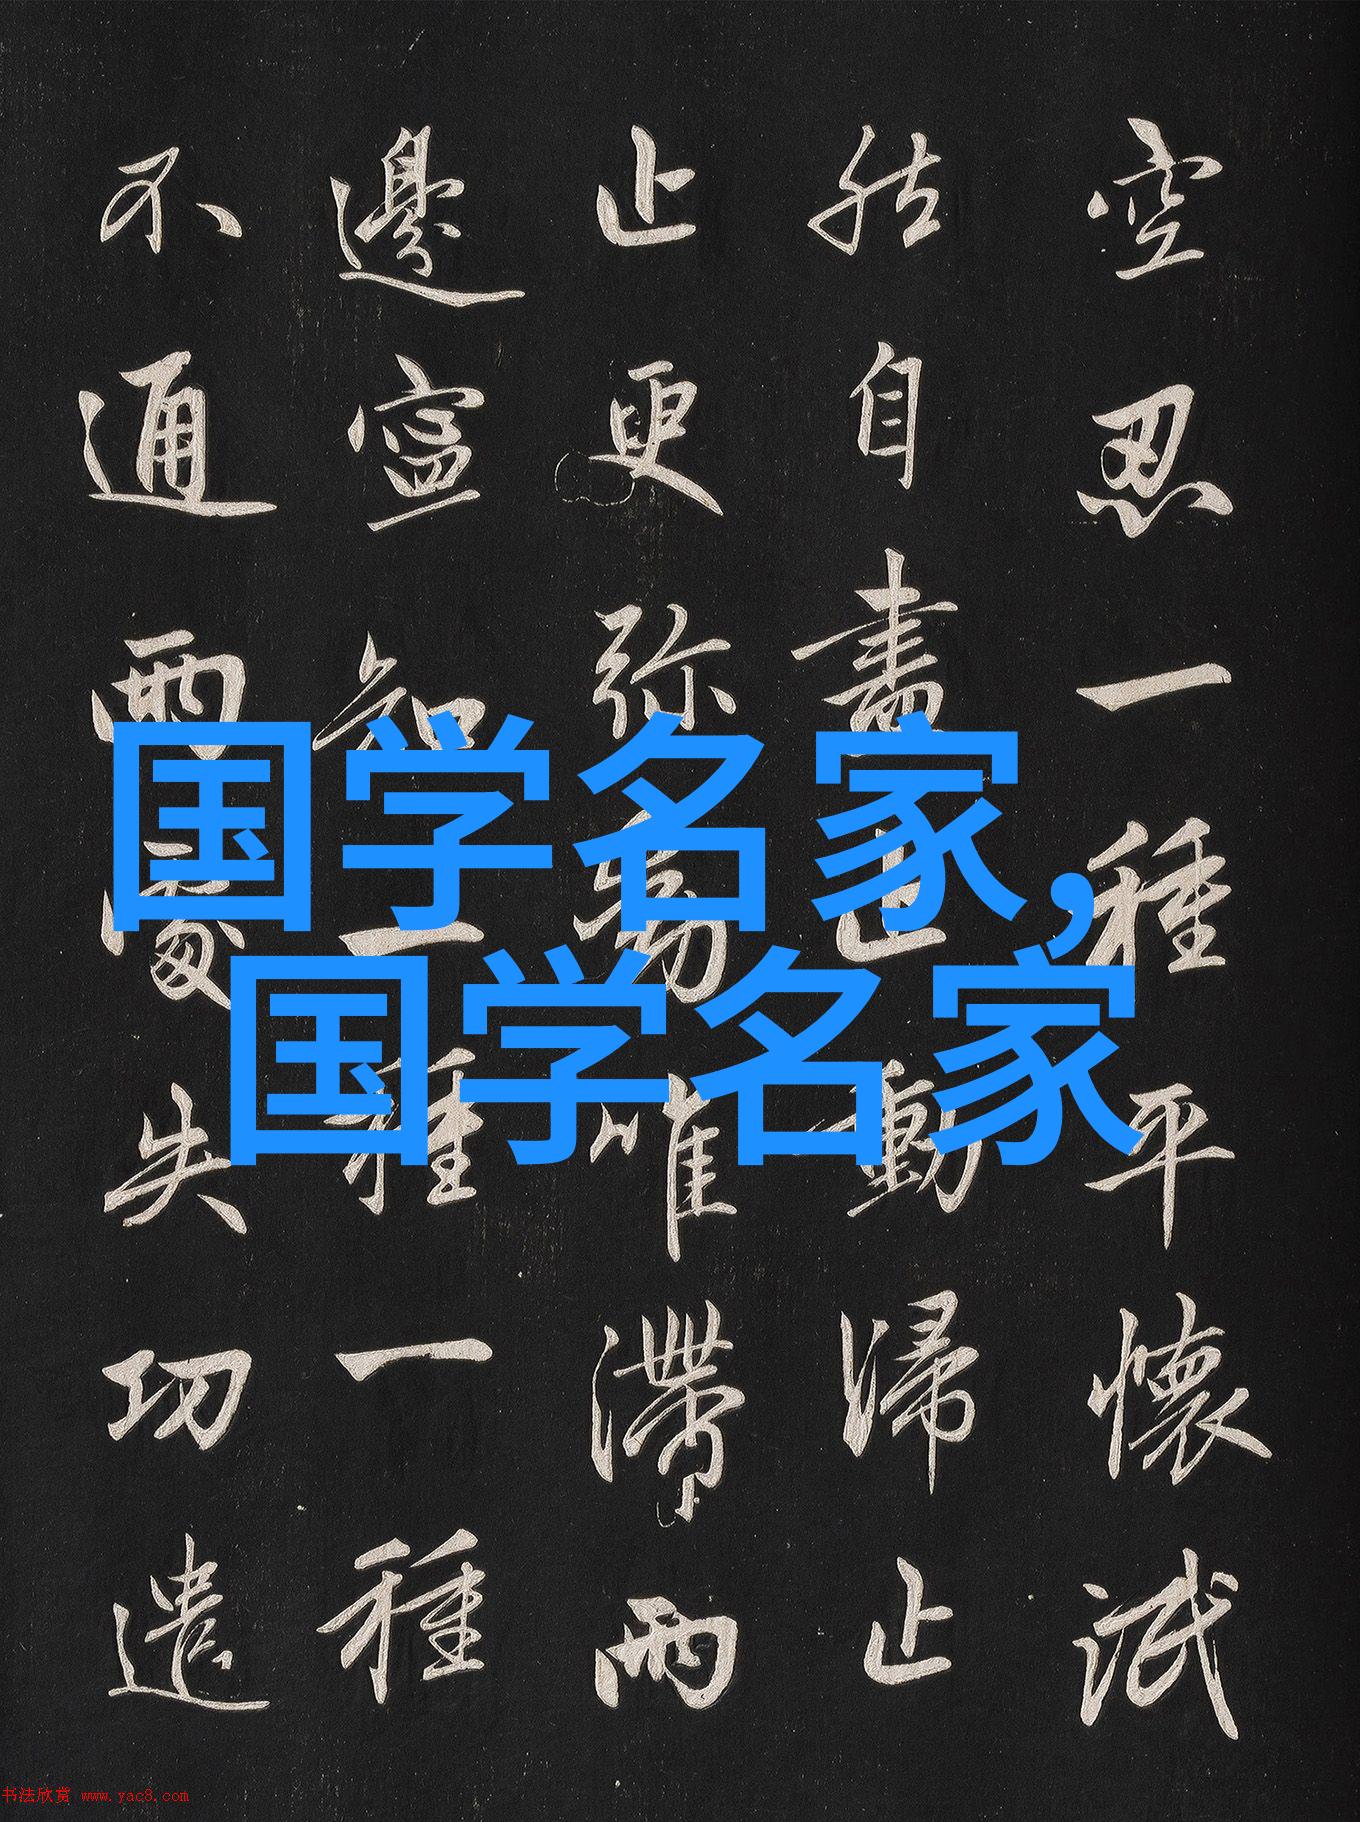 空忍一種平懷泯
然自盡止動歸止
止更弥動唯滯兩
邊寧知一種一種
不通兩處失功遣
国学名家,
国学名家
书法欣赏 www.yac8.com